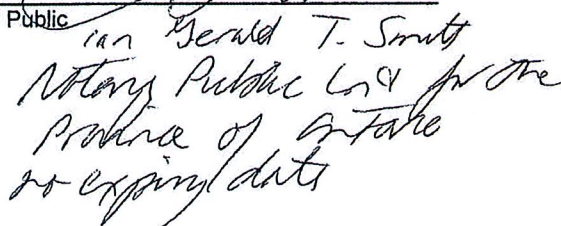 Public
Ian Gerald T. Smith
Notary Public in & for the
Province of Ontario
no expiry date